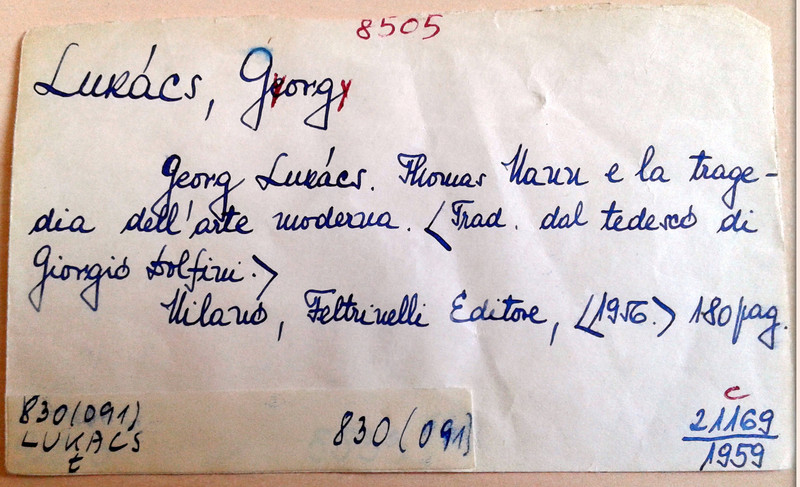 8505
Lukács, György
Georg Lukács. Thomas Mann e la trage-
dia dell'arte moderna. <Trad. dal tedesco di
Giorgio Dolfini.>
Milano, Feltrinelli Editore, <1956.> 180 pag.
830(091)
LUKACS
t
830(091)
c
21169
1959